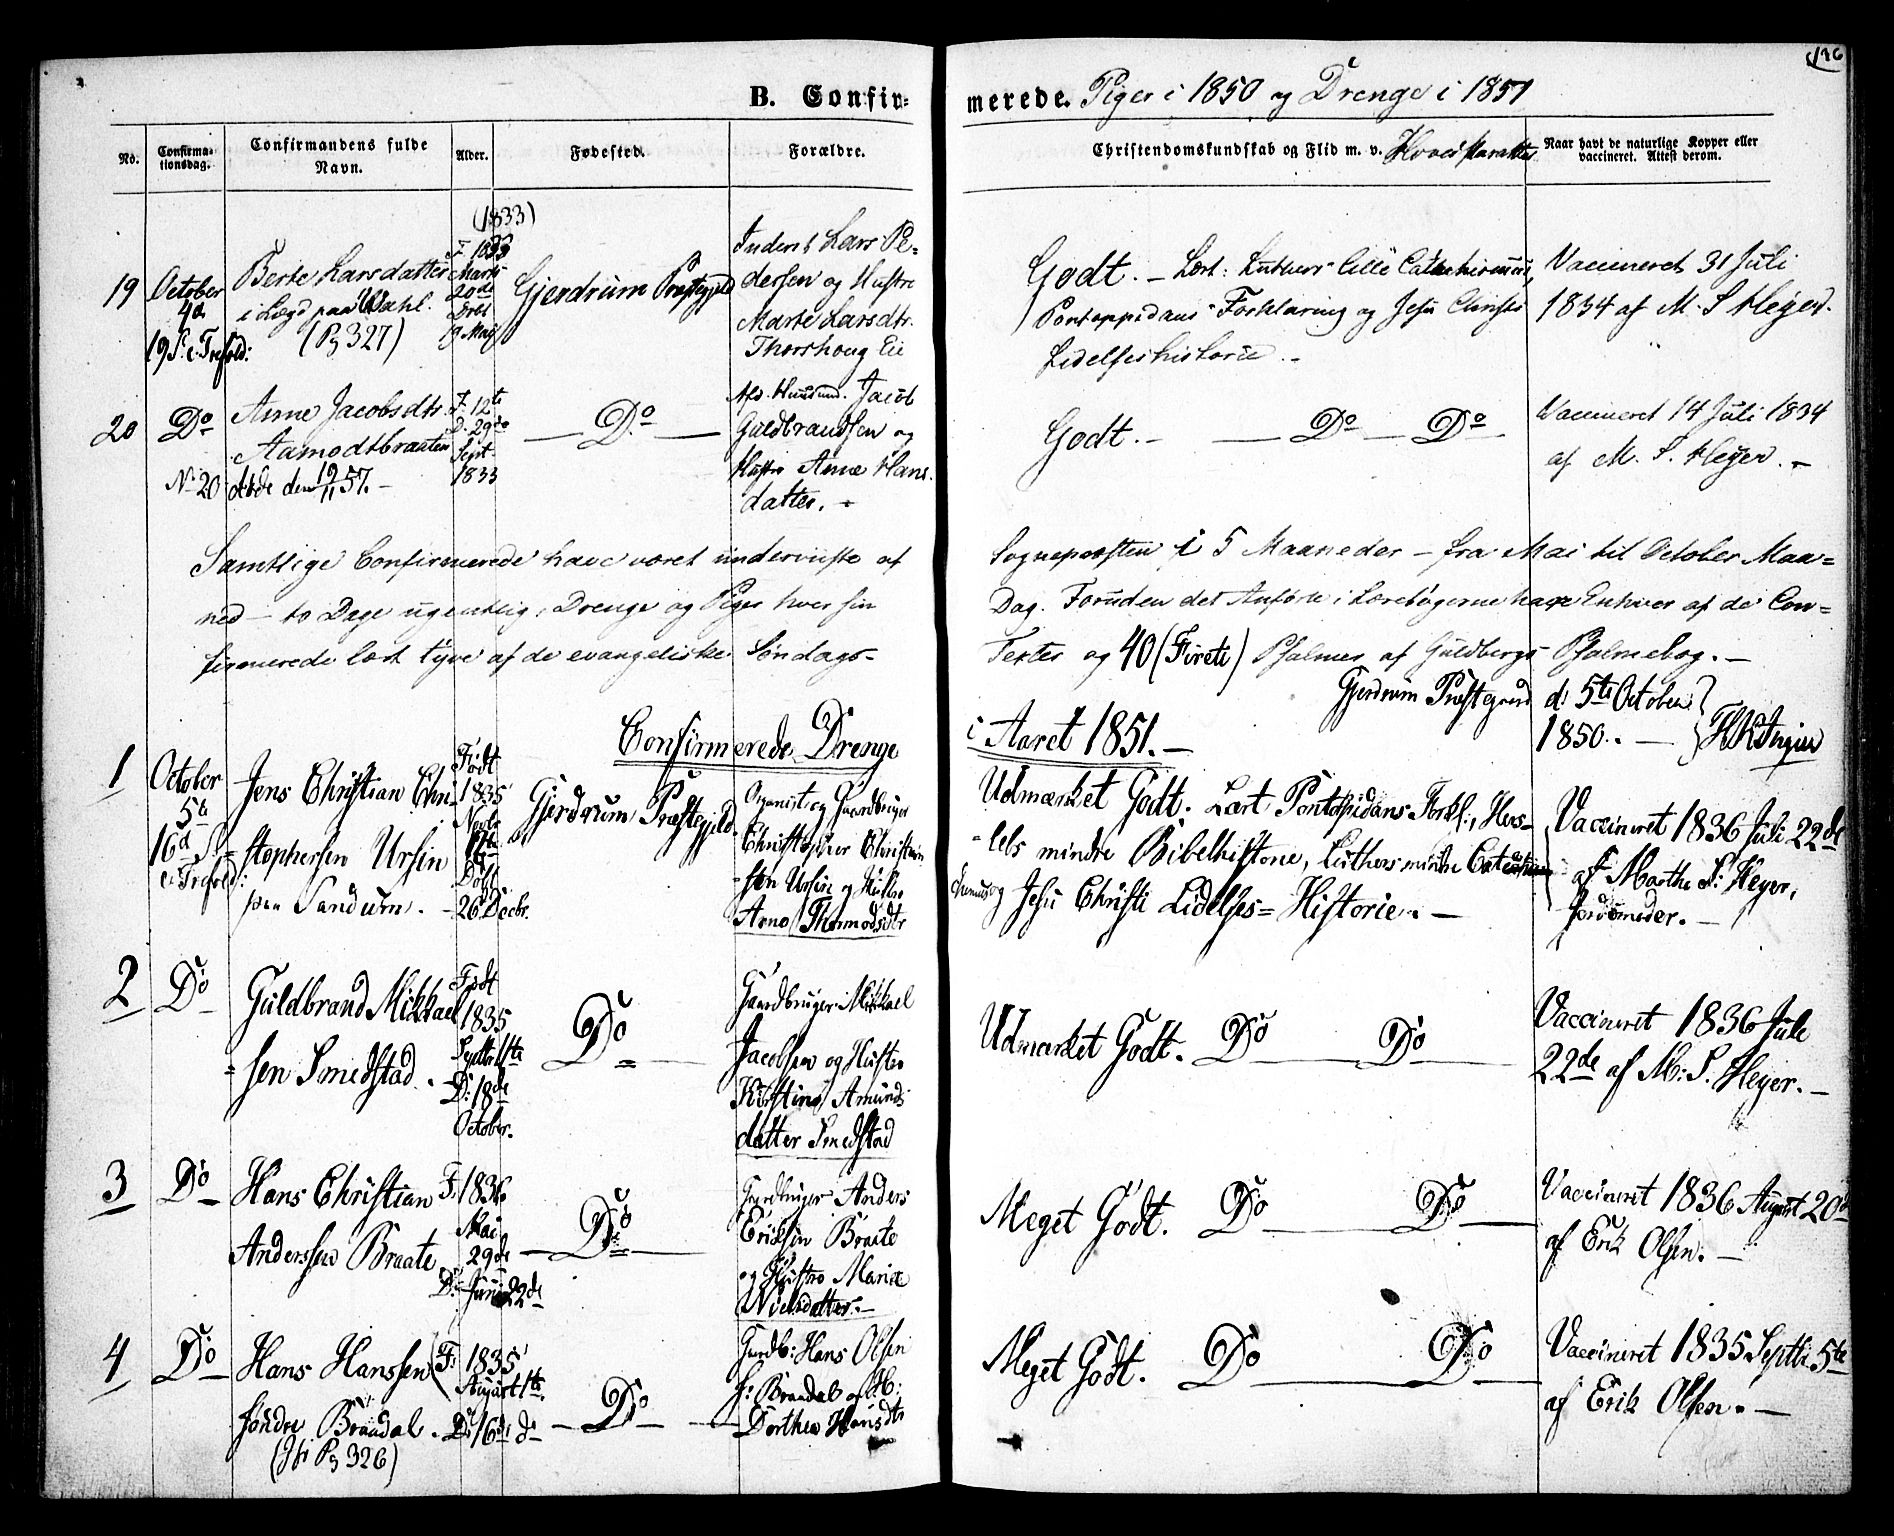 126
B. Confir=
merede. Piger i 1850 og Drenge i 1851
No.
Confirma-
tionsdag.
Confirmandens fulde
Navn.
Alder.
Fødested.
Forældre.
Christendomskundskab og Flid m. v.
Naar havt de naturlige Kopper eller
vaccineret. Attest derom.
19
October
4de
19 S. e. Trefold:
Berte Larsdatter
i Lægd paa Dahl.
(Pg 327)
(1833)
F. 1833
Marts
20de
Døbt
9 Mai
Gjerdrum Præstegjeld
Inderst Lars Pe-
dersen og Hustro
Marte Larsdtr.
Thorshoug Eie
Godt. - Læst: Luthers lille Catechismus,
Pontoppidans Forklaring og Jesu Christi
Lidelseshistorie. -
Vaccineret 31 Juli
1834 af M. S. Heyer.
20
Do
No 20
Anne Jacobsdtr.
Aamodtbraaten
døde den 19/11 57. -
F. 12te
D. 29de
Sept
1833
Do
Jacob
Guldbrandsen og
Hustro Anne Hans
datter. -
Godt. - Do Do
Vaccineret 14 Juli 1834
af M. S. Heyer. -
Samtlige Confirmerede have været underviiste af Sognepresten i 5 Maaneder - fra Mai til October Maa=
ned - to Dage ugentlig, Drenge og Piger hver sin Dag. Foruden det Anførte i Lærebøgerne have Enhver af de Con=
firmerede lært tyve af de evangeliske Søndags- Texter og 40 (Fireti) Psalmer af Guldbergs Psalmebog. -
Gjerdrum Præstegaard d: 5te October
1850. - H K Ingier
Confirmerede Drenge i Aaret 1851. -
1
October
5te
16d S=
e. Trefold:
Jens Christian Chri-
stophersen Ursin
paa Sandum. -
Født
1835
Novbr
17de
Døbt
26 Decbr.
Gjerdrum Præstegjeld.
Organist og Gaardbruger
Christopher Christian
sen Ursin og Hustro
Anne Thormodsdtr
Udmærket Godt. Læst Pontopidans Forkl:, Hers=
lebs mindre Bibelhistorie, Luthers mindre Catechis
mus og Jesu Christi Lidelses= Historie. -
Vaccineret 1836 Juli 22de
af Marthe S: Heyer,
Jordemoder. -
2
Do
Guldbrand Mikkael
sen Smedstad. -
Født
1835
Septbr 1ste
D: 18de
October.
Do
Gaardbruger Mikkael
Jacobsen og Hustro
Kirstine Amunds
datter Smedstad
Udmærket Godt. Do Do
Vaccineret 1836 Juli
22de af M: S. Heyer. -
3
Do
Hans Christian
Anderssen Braate
F. 1836
Mai
29de
D: Juni 22de
Do
Gaardbruger Anders
Eriksen Braate
og Hustro Marie
Nielsdatter. -
Meget Godt. Do Do
Vaccineret 1836 August 20de
af Erik Olsen. -
4
Do
Hans Hanssen
søndre Brændal.
(Pg 326)
F: 1835
August 1ste
D: 16de
Do
Gaardb: Hans Olsen
s: Brændal og H:
Dorthea Hansdtr
Meget Godt. Do Do
Vaccineret 1835 Septbr 5te
af Erik Olsen. -